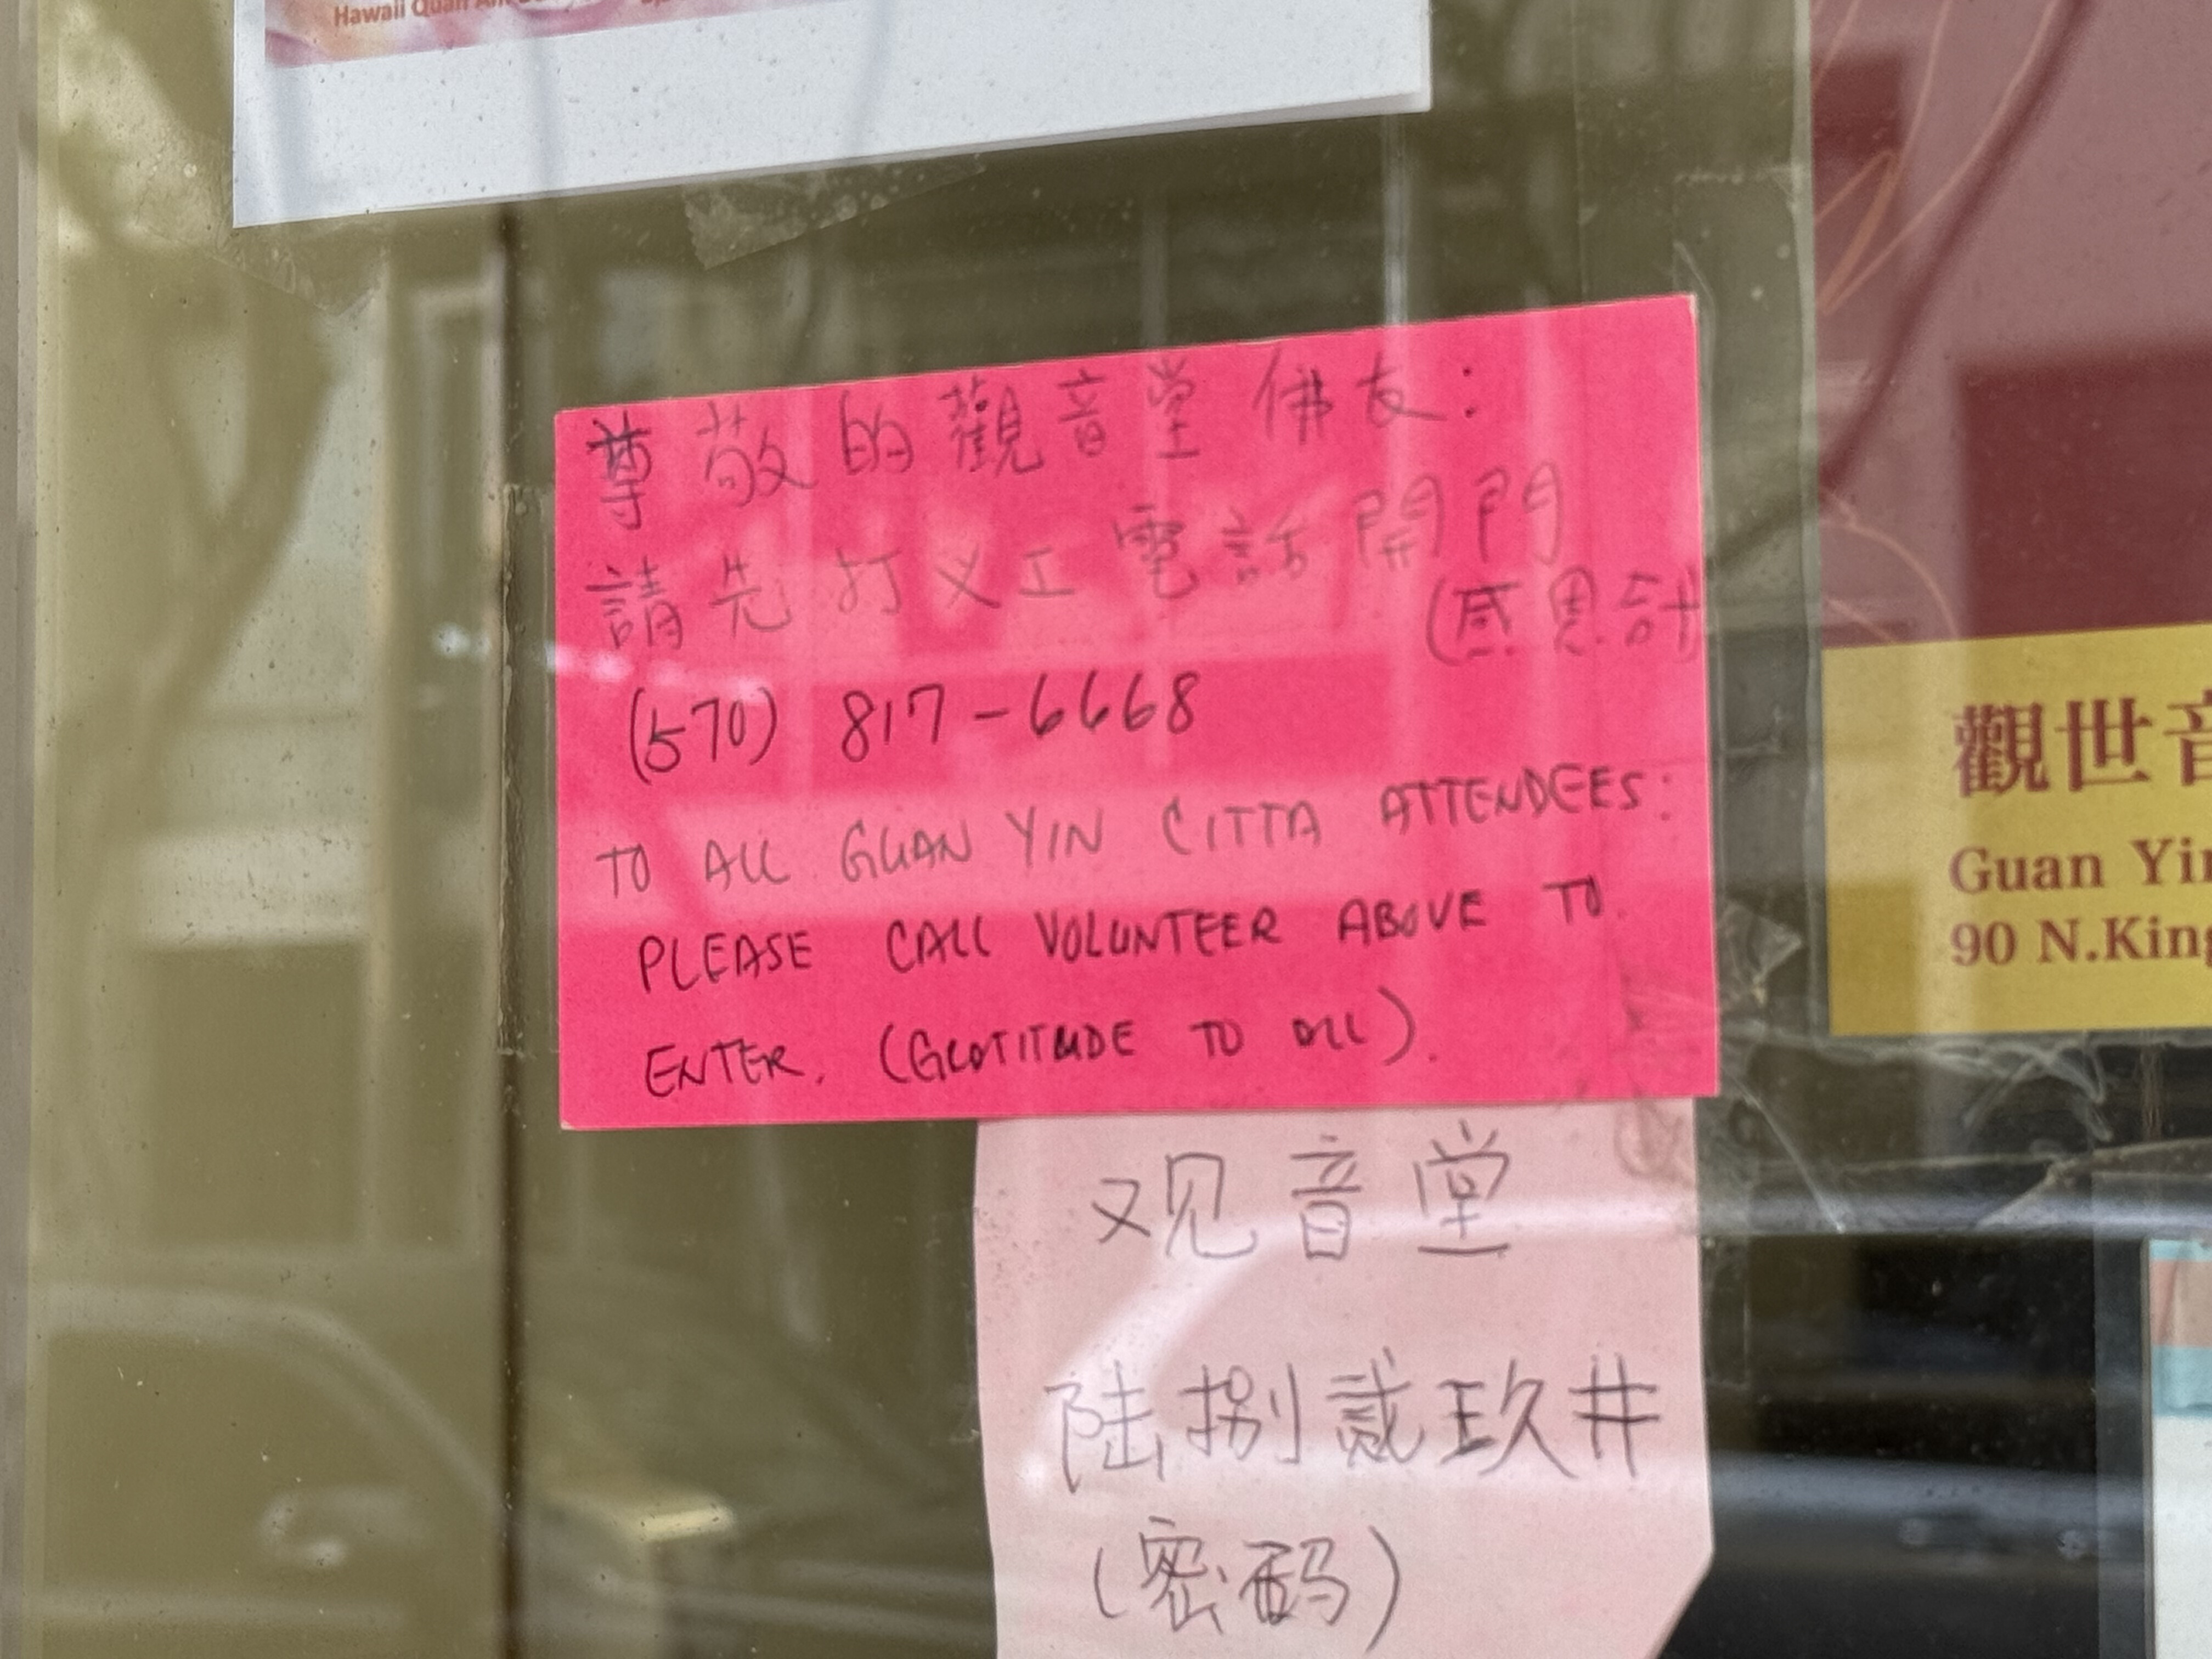 Hawaii Quan
尊敬的觀音堂 佛友：
請先打义工電話開門
(感恩
(570) 817-6668
TO ALL GUAN YIN CITTA ATTENDEES:
PLEASE CALL VOLUNTEER ABOVE TO
ENTER. (GLATITUDE TO ALL).
观音堂
陆捌贰玖井
(密码)
觀世音
Guan Yin
90 N.King